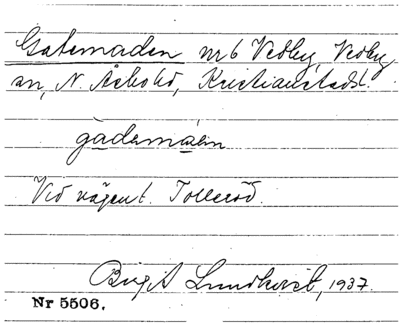 Gatemaden nr 6 Vedby, Vedby
sn, N. Åsbo hd, Kristianstads l.
gademaen
Vid vägen t. Tolleröd.
Birgit Lundkvist, 1937.
Nr 5506.